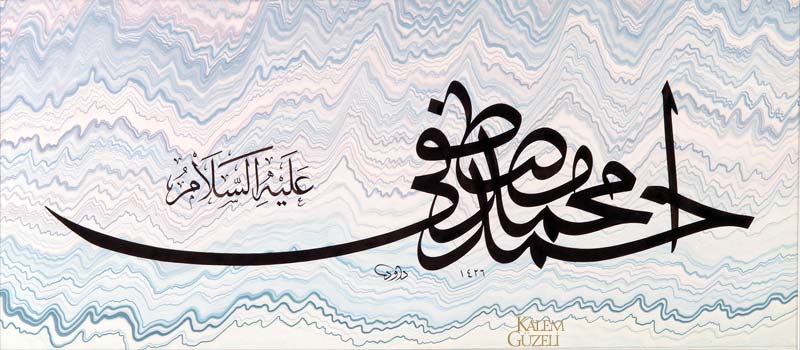 احمد محمد مصطفى
عَلَيْهِ السَّلَامُ
داود ١٤٢٦
KALEM
GÜZELİ